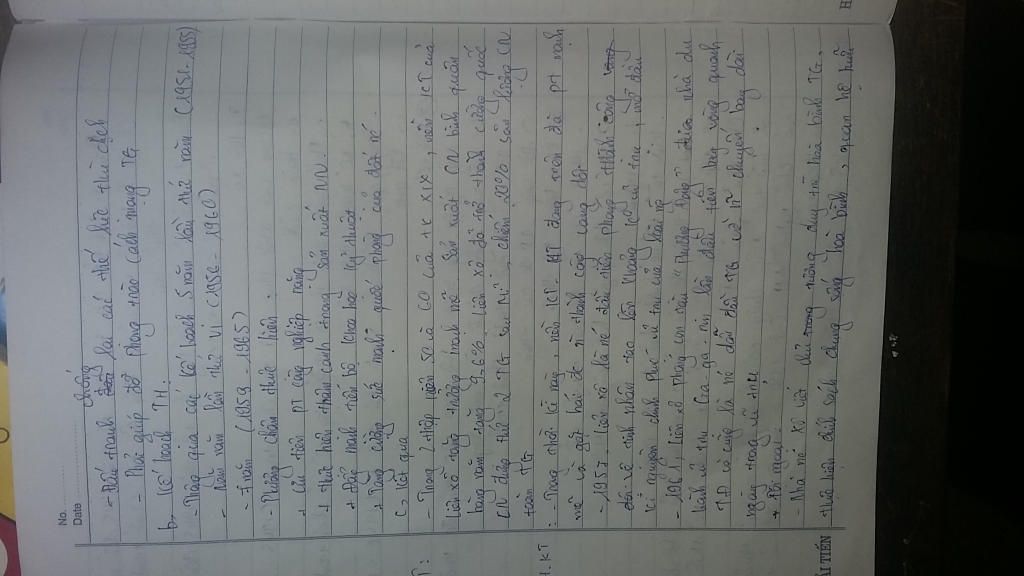 No.
Date
chống
- Đấu tranh lại các thế lực thù địch
- Phải giúp đỡ phong trào cách mạng TG
b. Kế hoạch TH:
- Thông qua các kế hoạch 5 năm lần thứ năm (1951-1955)
- Năm năm lần thứ VI (1956 - 1960)
- 7 năm (1959 - 1965)
- Phương châm thực hiện:
+ Ưu tiên PT công nghiệp nặng
+ Thực hiện thâm canh trong sản xuất NN.
+ Đẩy mạnh tiến bộ khoa học kỹ thuật
+ Tăng cường sức mạnh quốc phòng của đất nc
c- Kết quả
- Trong 2 thập niên 50 và 60 của TK XIX, nền KT của
Liên xô tăng trưởng mạnh mẽ. Sản xuất CN bình quân
hàng năm tăng 9,6%. Liên xô đã trở thành cường quốc
CN đứng thứ 2 TG sau Mĩ, chiếm 20% sản lượng CN
toàn TG
T:
- Trong thời kì này, nền KT - KT đang trên đà PT mạnh
mẽ và gặt hái đc thành công
- 1957, Liên xô là nc đầu tiên phóng thành công
vệ tinh nhân tạo lên khoảng không vũ trụ, mở đầu
kỉ nguyên chinh phục vũ trụ của loài ng
H. KT
- 1961, Liên xô phóng con tàu "Phương Đông" đưa nhà du
hành vũ trụ Ga-ga-rin lần đầu tiên bay vòng quanh
TĐ và cũng là nc dẫn đầu TG về chuyến bay dài
ngày trong vũ trụ
* Đối ngoại:
- Nhà nc Xô viết chủ trương duy trì hoà bình TG,
thực hiện chính sách chung sống hoà bình, quan hệ hữu
ẢI TIẾN
H